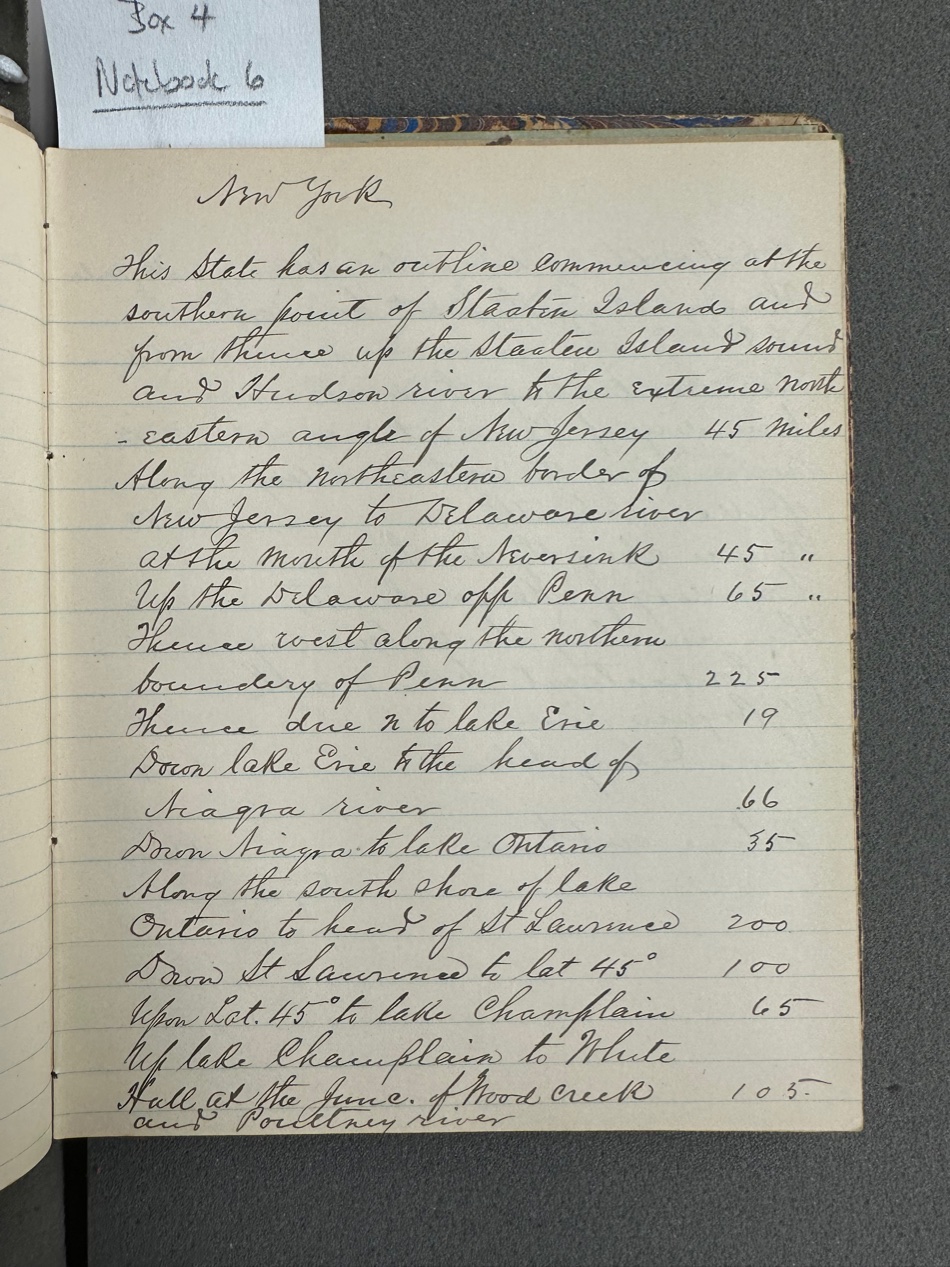 Box 4
Notebook 6
New York
This State has an outline commencing at the
southern point of Staaten Island and
from thence up the Staaten Island sound
and Hudson river to the extreme north
- eastern angle of New Jersey 45 miles
Along the northeastern border of
New Jersey to Delaware river
at the mouth of the Neversink 45 "
Up the Delaware opp Penn 65 "
Thence west along the northern
boundery of Penn 225
Thence due n to lake Erie 19
Down lake Erie to the head of
Niagra river 66
Down Niagra to lake Ontario 35
Along the south shore of lake
Ontario to head of St Lawrence 200
Down St Lawrence to lat 45°  100
Upon Lat. 45° to lake Champlain 65
Up lake Champlain to White
Hall at the Junc. of Wood creek 105
and Poultney river